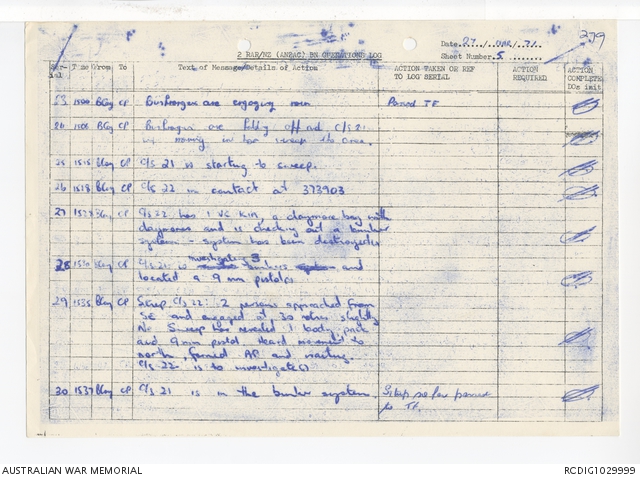 379
2 RAR/NZ (ANZAC) BN OPERATIONS LOG
Date 27 / MAR / 71
Sheet Number 5
Serial Time From To Text of Message/Details of Action ACTION TAKEN OR REF TO LOG SERIAL ACTION REQUIRED ACTION COMPLETED DOs init
23 1500 BCoy CP Bushrangers are engaging now Passed TF
24 1506 BCoy CP Bushrangers are holding off and C/S 21
is moving in to sweep the area.
25 1515 BCoy CP C/S 21 is starting to sweep.
26 1518 BCoy CP C/S 22 in contact at 373903
27 BCoy CP C/S 22 has 1 VC KIA, a claymore bag with
claymores and is checking out a bunker
system - system has been destroyed
28 1530 BCoy CP C/S 21 is investigating 3 bunkers and
located a 9 mm pistol
29 1535 BCoy CP Sitrep C/S 22: 2 persons approached from
SE and engaged at 30 metres slightly
N. Sweep has revealed 1 body, pack
and 9mm pistol. Heard movement to
north, formed AP and waiting.
C/S 22 is to investigate
30 1537 BCoy CP C/S 21 is in the bunker system. Sitrep so far passed
to TF.
AUSTRALIAN WAR MEMORIAL
RCDIG1029999